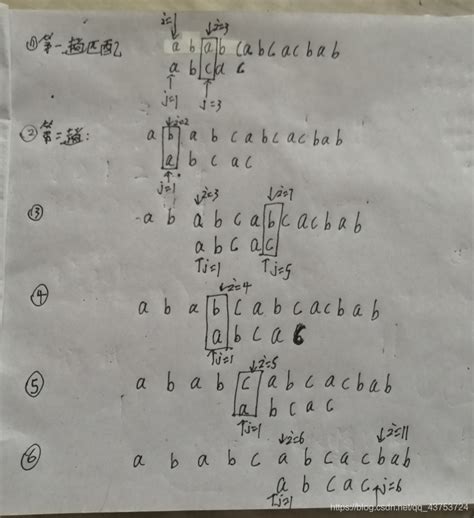 i= i=3
① 第一趟匹配 a b a b c a b c a c b a b
a b c a c
j=1 j=3
i=2
② 第二趟: a b a b c a b c a c b a b
a b c a c
j=1
i=3 i=7
③ a b a b c a b c a c b a b
a b c a c
j=1 j=5
i=4
④ a b a b c a b c a c b a b
a b c a c
j=1
i=5
⑤ a b a b c a b c a c b a b
a b c a c
j=1
i=6 i=11
⑥ a b a b c a b c a c b a b
a b c a c j=6
j=1
https://blog.csdn.net/qq_43753724